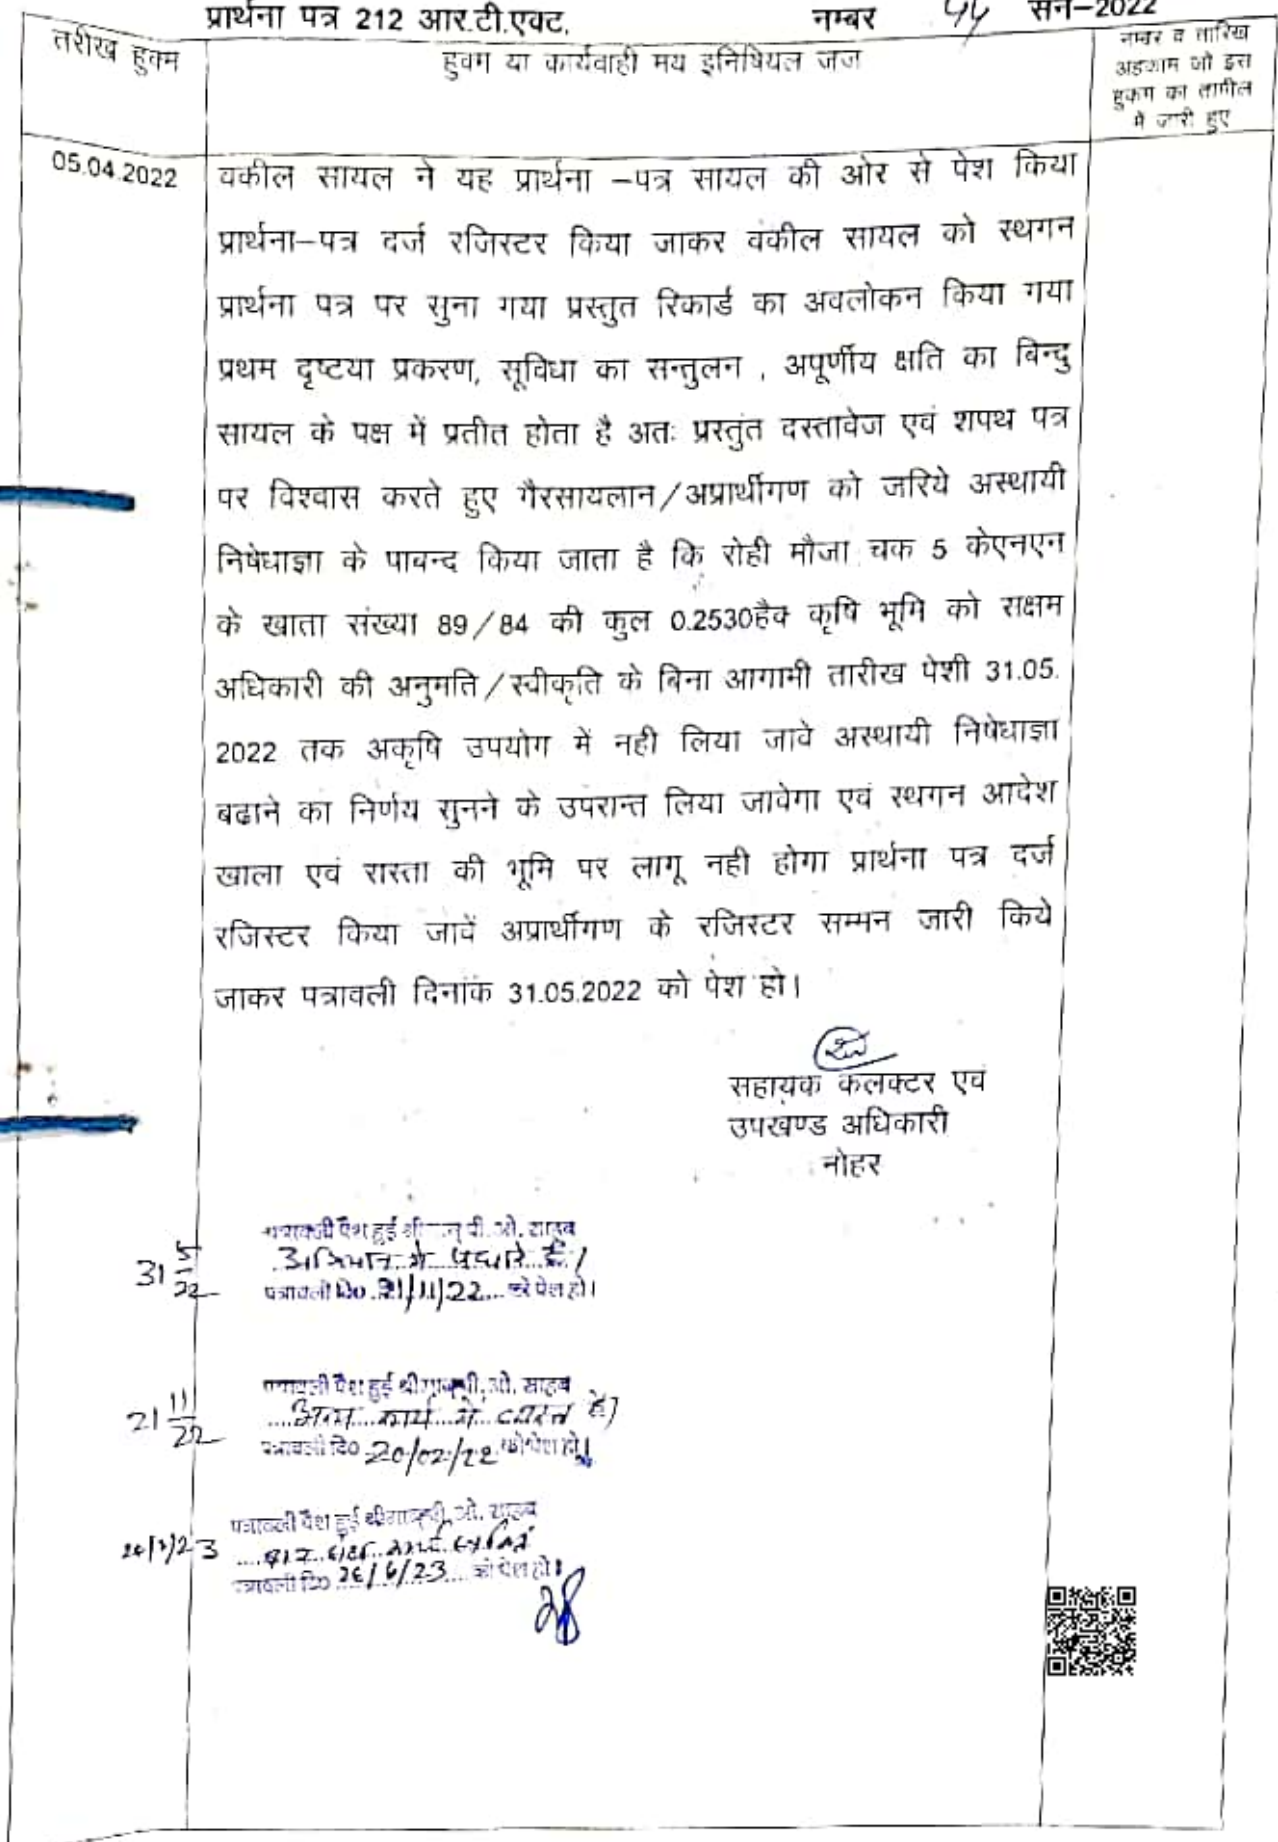 प्रार्थना पत्र 212 आर.टी.एक्ट. नम्बर 44 सन–2022
तरीख हुक्म
हुक्म या कार्यवाही मय इनिषियल जज
नम्बर व तारिख
अहकाम जो इस
हुकम का तामील
मे जारी हुए
05.04.2022
वकील सायल ने यह प्रार्थना –पत्र सायल की ओर से पेश किया
प्रार्थना–पत्र दर्ज रजिस्टर किया जाकर वकील सायल को स्थगन
प्रार्थना पत्र पर सुना गया प्रस्तुत रिकार्ड का अवलोकन किया गया
प्रथम दृष्टया प्रकरण, सूविधा का सन्तुलन , अपूर्णीय क्षति का बिन्दु
सायल के पक्ष में प्रतीत होता है अतः प्रस्तुत दस्तावेज एवं शपथ पत्र
पर विश्वास करते हुए गैरसायलान/अप्रार्थीगण को जरिये अस्थायी
निषेधाज्ञा के पाबन्द किया जाता है कि रोही मौजा चक 5 केएनएन
के खाता संख्या 89/84 की कुल 0.2530हैक कृषि भूमि को सक्षम
अधिकारी की अनुमति/स्वीकृति के बिना आगामी तारीख पेशी 31.05.
2022 तक अकृषि उपयोग में नही लिया जावे अस्थायी निषेधाज्ञा
बढाने का निर्णय सुनने के उपरान्त लिया जावेगा एवं स्थगन आदेश
खाला एवं रास्ता की भूमि पर लागू नही होगा प्रार्थना पत्र दर्ज
रजिस्टर किया जावें अप्रार्थीगण के रजिस्टर सम्मन जारी किये
जाकर पत्रावली दिनांक 31.05.2022 को पेश हो।
सहायक कलक्टर एवं
उपखण्ड अधिकारी
नोहर
31/5/22
पत्रावली पेश हुई पी. ओ. साहब
में पधारे है।
पत्रावली दि0 21/11/22 को पेश हो।
21/11/22
पत्रावली पेश हुई पी. ओ. साहब
अन्य कार्य में व्यस्त है।
पत्रावली दि0 20/02/22 को पेश हो।
पत्रावली पेश हुई ओ. साहब
कार्य
पत्रावली दि0 26/6/23 को पेश हो।